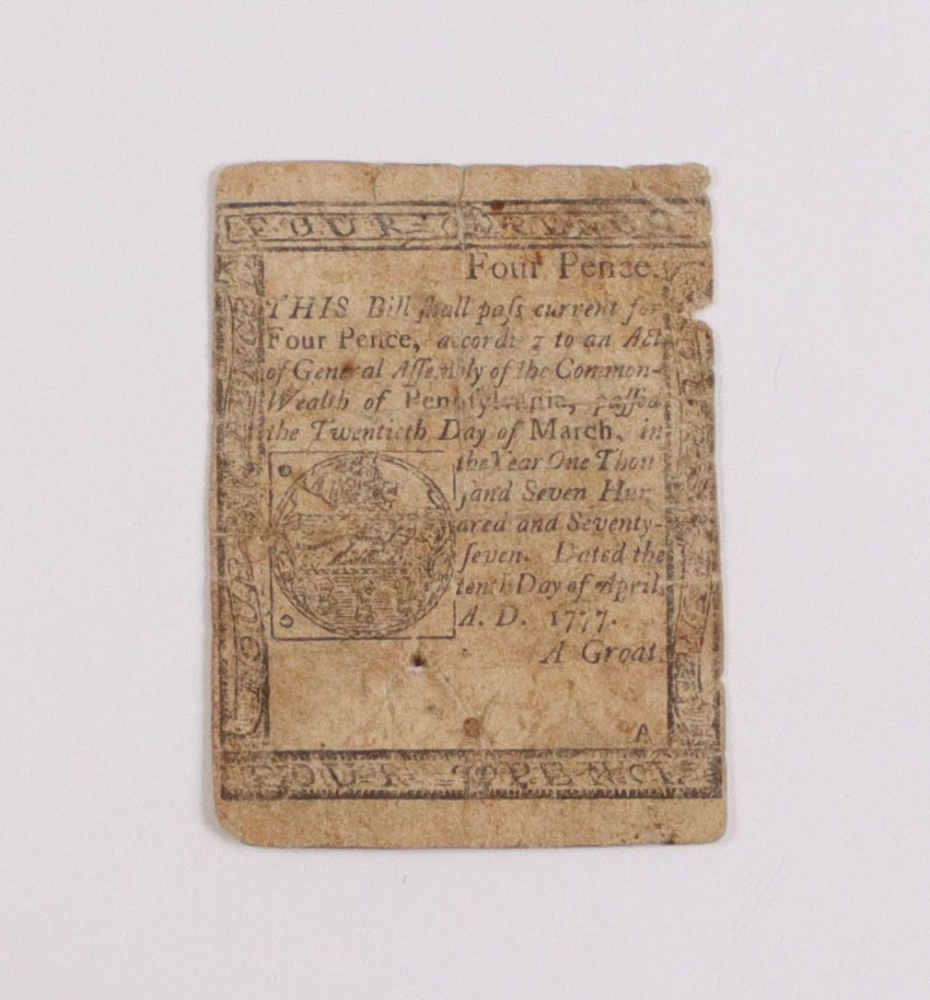 FOUR PENCE
Four Pence.
THIS Bill ſhall paſs current for
Four Pence, according to an Act
of General Aſſembly of the Common-
Wealth of Pennſylvania, paſſed
the Twentieth Day of March, in
the Year One Thou
ſand Seven Hun
dred and Seventy-
ſeven. Dated the
tenth Day of April,
A. D. 1777.
A Groat.
A
FOUR PENCE